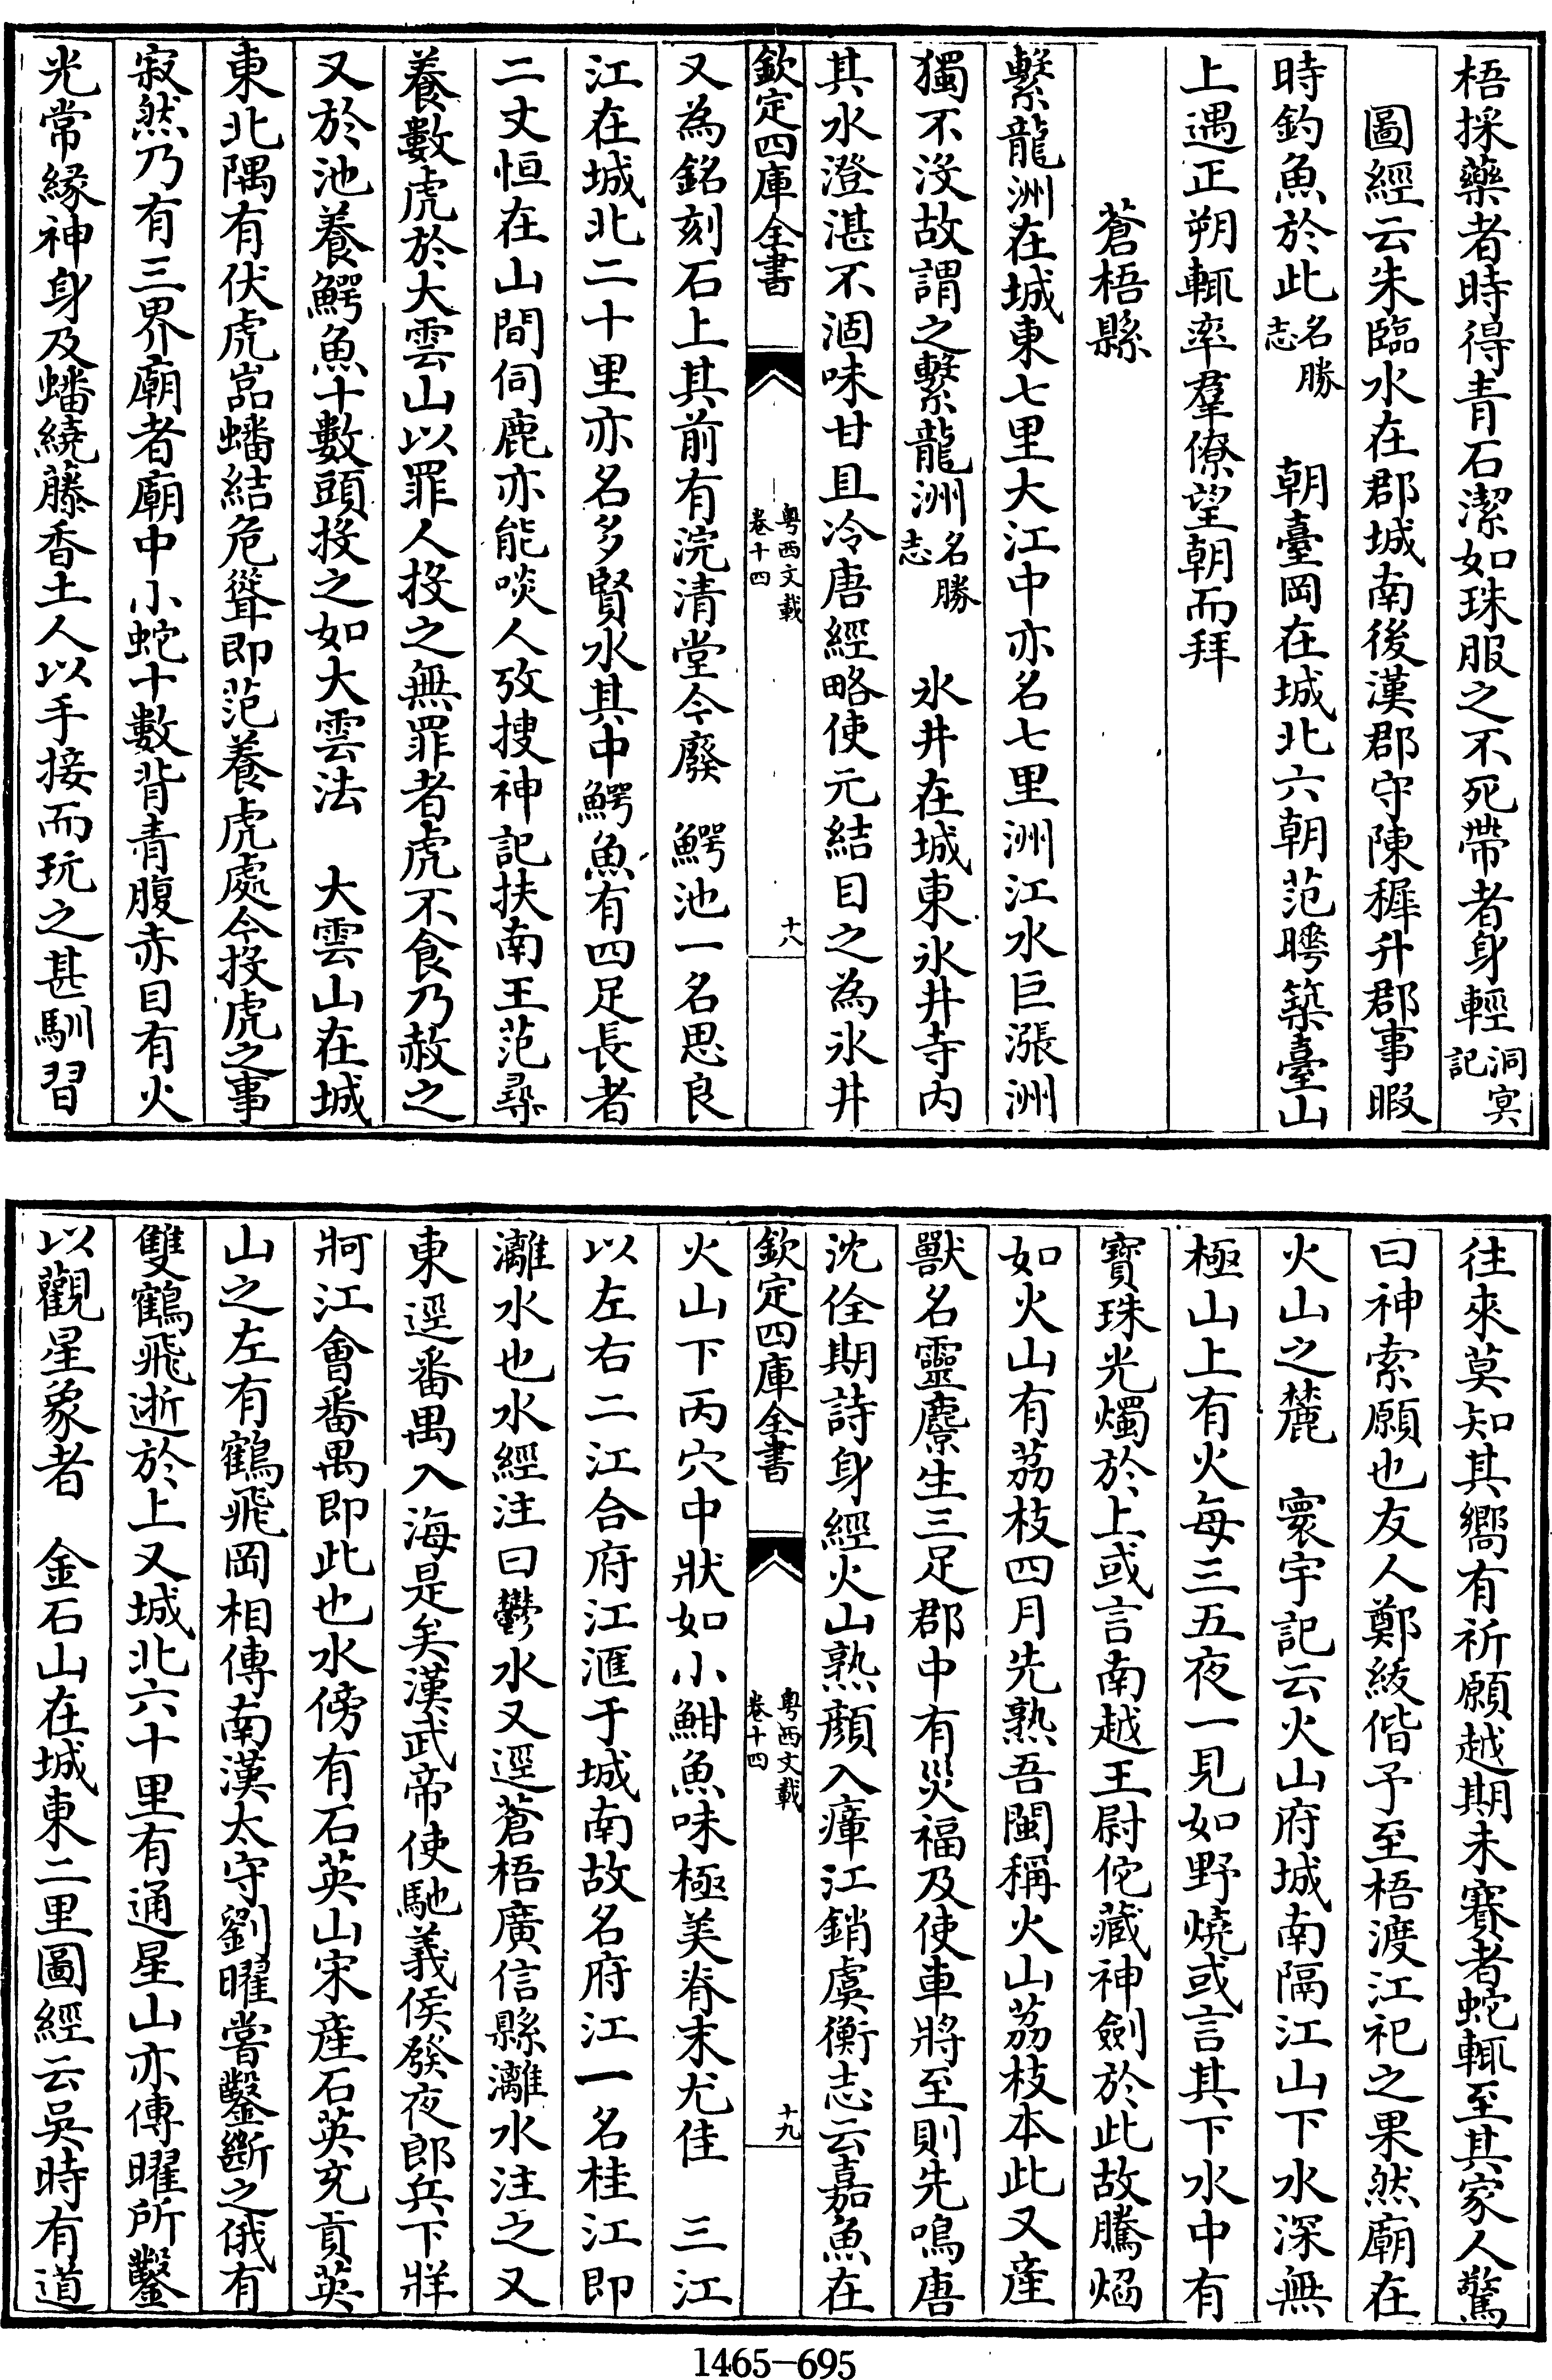 梧採藥者時得青石潔如珠服之不死帶者身輕洞冥記
圖經云朱臨水在郡城南後漢郡守陳穉升郡事暇
時釣魚於此名勝志　朝臺岡在城北六朝范甹築臺山
上遇正朔輒率羣僚望朝而拜
蒼梧縣
繫龍洲在城東七里大江中亦名七里洲江水巨漲洲
獨不沒故謂之繫龍洲名勝志　氷井在城東氷井寺內
其水澄湛不涸味甘且冷唐經略使元結目之為氷井
欽定四庫全書
粤西文載
卷十四
十八
又為銘刻石上其前有浣清堂今廢　鰐池一名思良
江在城北二十里亦名多賢水其中鰐魚有四足長者
二丈恒在山間伺鹿亦能啖人攷搜神記扶南王范尋
養數虎於大雲山以罪人投之無罪者虎不食乃赦之
又於池養鰐魚十數頭投之如大雲法　大雲山在城
東北隅有伏虎嵓蟠結危聳即范養虎處今投虎之事
寂然乃有三界廟者廟中小蛇十數背青腹赤目有火
光常緣神身及蟠繞籐香土人以手接而玩之甚馴習
往來莫知其嚮有祈願越期未賽者蛇輒至其家人驚
曰神索願也友人鄭綾偕予至梧渡江祀之果然廟在
火山之麓　寰宇記云火山府城南隔江山下水深無
極山上有火每三五夜一見如野燒或言其下水中有
寶珠光燭於上或言南越王尉佗藏神劍於此故騰焰
如火山有茘枝四月先熟吾閩稱火山茘枝本此又產
獸名靈麖生三足郡中有災福及使車將至則先鳴唐
沈佺期詩身經火山熟顏入瘴江銷虞衡志云嘉魚在
欽定四庫全書
粤西文載
卷十四
十九
火山下丙穴中狀如小鮒魚味極美脊末尤佳　三江
以左右二江合府江滙于城南故名府江一名桂江即
灕水也水經注曰鬱水又逕蒼梧廣信縣灕水注之又
東逕番禺入海是矣漢武帝使馳義侯發夜郎兵下牂
牁江會番禺即此也水傍有石英山宋產石英充貢英
山之左有鶴飛岡相傳南漢太守劉曜嘗鑿斷之俄有
雙鶴飛逝於上又城北六十里有通星山亦傳曜所鑿
以觀星象者　金石山在城東二里圖經云吳時有道
1465-695